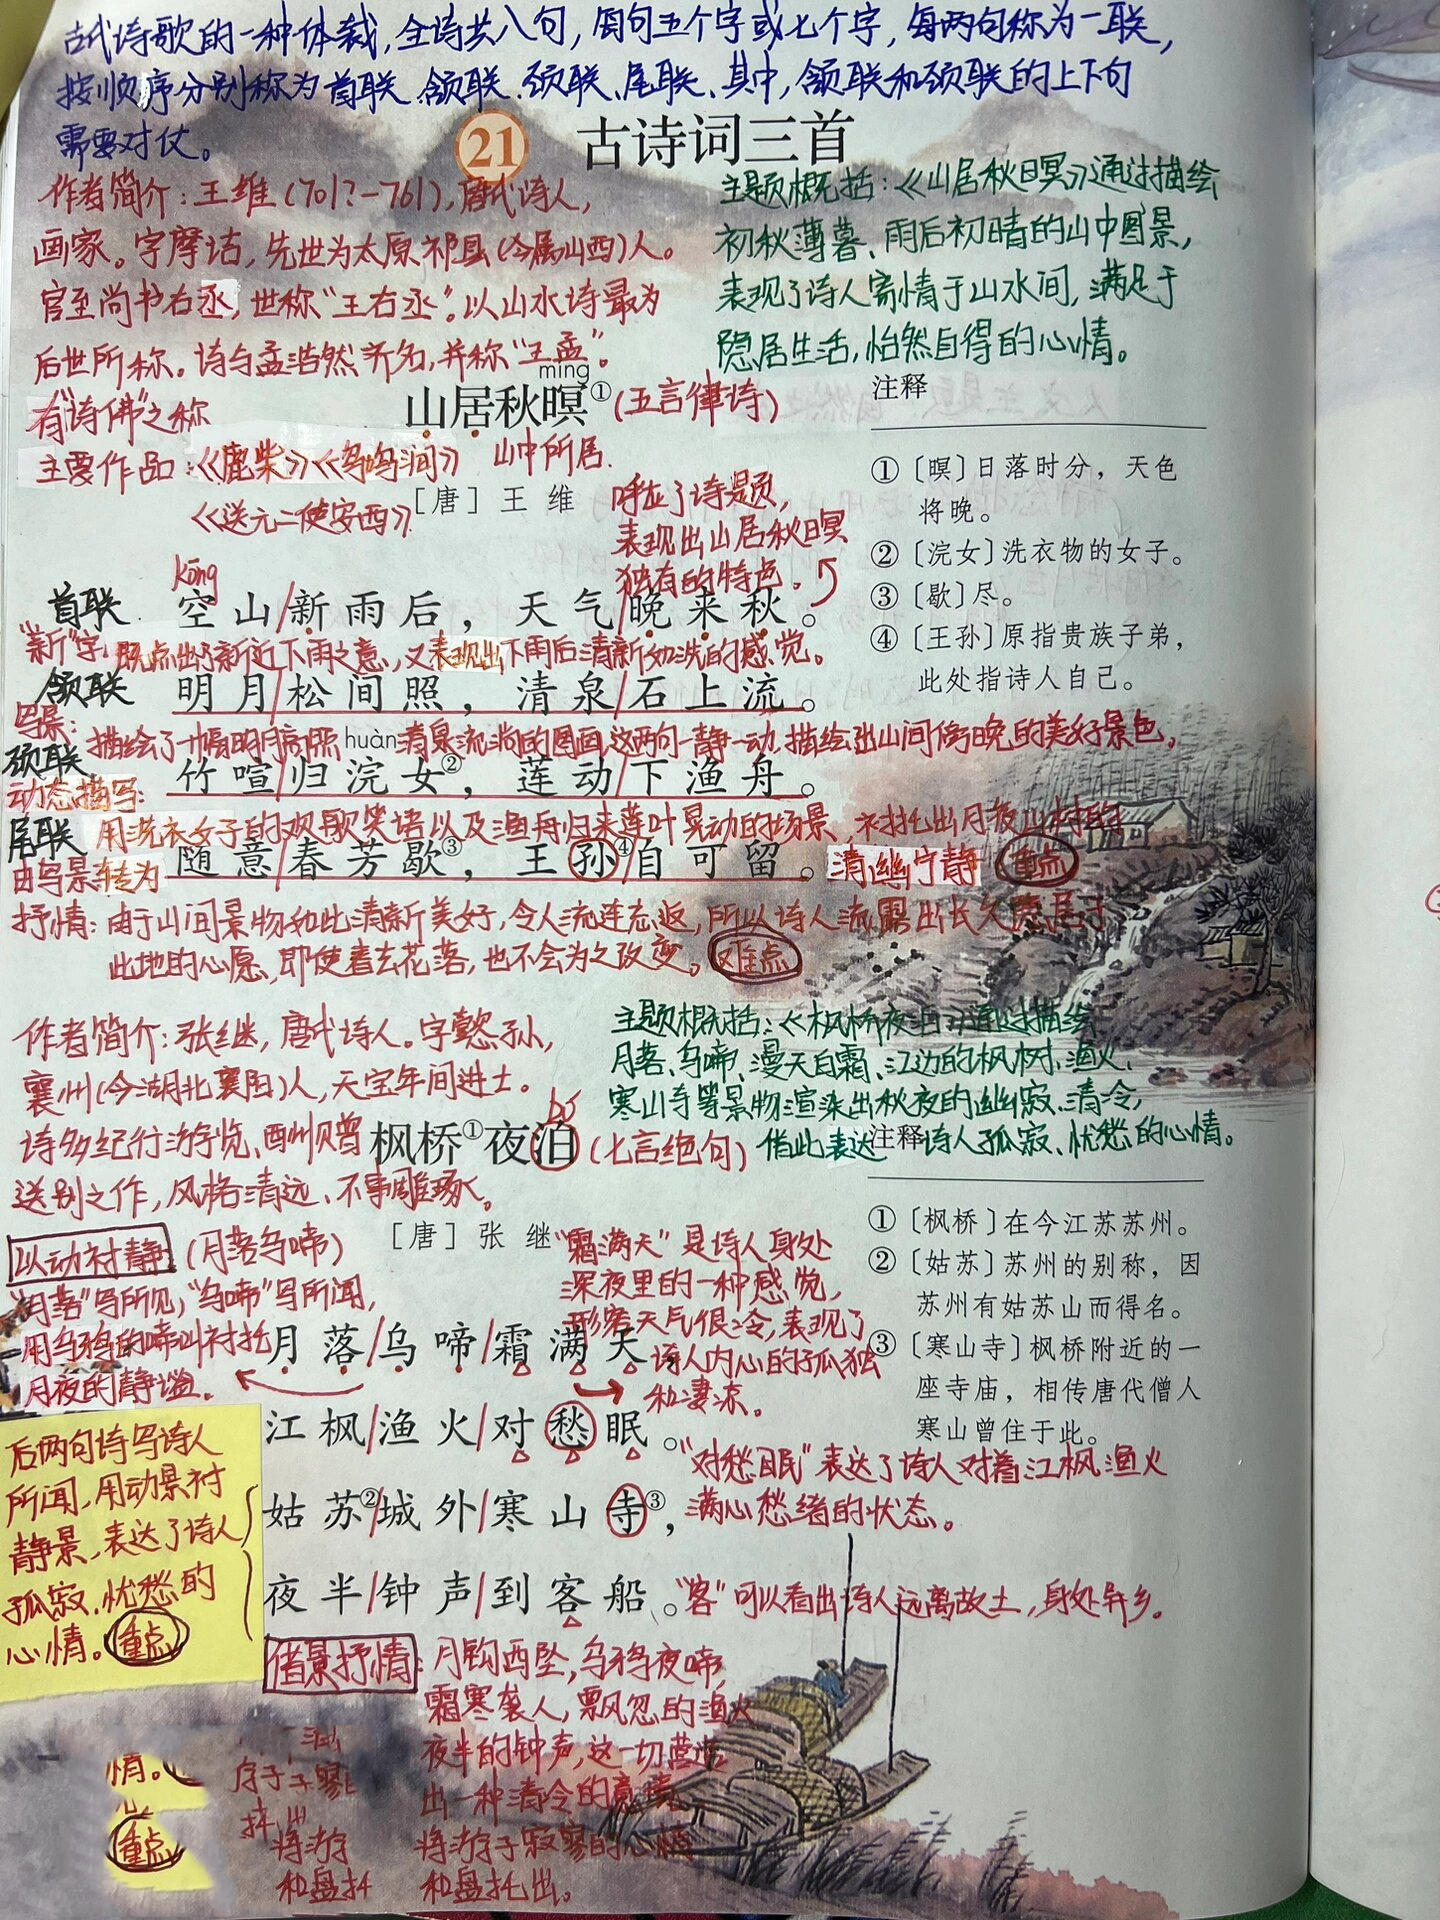 古代诗歌的一种体裁,全诗共八句,每句五个字或七个字,每两句称为一联,
按顺序分别称为首联、颔联、颈联、尾联、其中,颔联和颈联的上下句
需要对仗。
21 古诗词三首
作者简介:王维(701?-761),唐代诗人,
画家。字摩诘,先世为太原祁县(今属山西)人。
官至尚书右丞,世称“王右丞”。以山水诗最为
后世所称。诗与孟浩然齐名,并称“王孟”。
有“诗佛”之称
主要作品:《鹿柴》《鸟鸣涧》
《送元二使安西》.
主题概括:《山居秋暝》通过描绘
初秋薄暮、雨后初晴的山中图景,
表现了诗人寄情于山水间,满足于
隐居生活,怡然自得的心情。
míng
山居秋暝①(五言律诗)
山中所居.
[唐]王 维
呼应了诗题,
表现出山居秋日暝
独有的特点。
注释
①〔暝〕日落时分,天色
将晚。
②〔浣女〕洗衣物的女子。
③〔歇〕尽。
④〔王孙〕原指贵族子弟,
此处指诗人自己。
kōng
首联 空山/新雨后,天气/晚来秋。
“新”字,既点出了新近下雨之意,又表现出下雨后清新如洗的感觉。
颔联 明月/松间照,清泉/石上流。
写景:描绘了一幅明月高照 清泉流淌的图画,这两句一静一动,描绘出山间傍晚的美好景色。
huàn
颈联 竹喧/归浣女②,莲动/下渔舟。
动态描写:用洗衣女子的欢歌笑语以及渔舟归来莲叶晃动的场景,衬托出月夜山村的
清幽宁静 重点
尾联 随意/春芳歇③,王孙④/自可留。
由写景转为
抒情:由于山间景物如此清新美好,令人流连忘返,所以诗人流露出长久隐居于
此地的心愿,即使春去花落,也不会为之改变。难点
作者简介:张继,唐代诗人。字懿孙,
襄州(今湖北襄阳)人,天宝年间进士。
诗多纪行游览、酉州贝曾
送别之作,风格清远、不事雕琢。
主题概括:《枫桥夜泊》通过描绘
月落、乌啼、漫天白霜、江边的枫树、渔火、
寒山寺等景物渲染出秋夜的幽寂、清冷,
借此表达诗人孤寂、忧愁的心情。
bó
枫桥①夜泊(七言绝句)
[唐]张 继
注释
①〔枫桥〕在今江苏苏州。
②〔姑苏〕苏州的别称,因
苏州有姑苏山而得名。
③〔寒山寺〕枫桥附近的一
座寺庙,相传唐代僧人
寒山曾住于此。
以动衬静:(月落乌啼)
“月落”写所见,“乌啼”写所闻,
用乌鸦的啼叫衬托
月夜的静谧。
“霜满天”是诗人身处
深夜里的一种感觉,
形容天气很冷,表现了
诗人内心的孤独
和凄凉。
月落/乌啼/霜满天,
江枫/渔火/对愁眠。
“对愁眠”表达了诗人对着江枫渔火
满心愁绪的状态。
姑苏②/城外/寒山寺③,
夜半/钟声/到客船。
“客”可以看出诗人远离故土,身处异乡。
后两句诗写诗人
所闻,用动景衬
静景,表达了诗人
孤寂、忧愁的
心情。重点
借景抒情:月钩西坠,乌鸦夜啼,
霜寒袭人,飘忽的渔火
夜半的钟声,这一切营造
出一种清冷的意境
将游子寂寥的心情
和盘托出。
情。
重点
将游
和盘